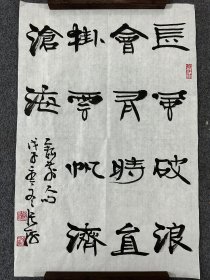 長風破浪
會有時直
掛雲帆濟
滄海
戊子